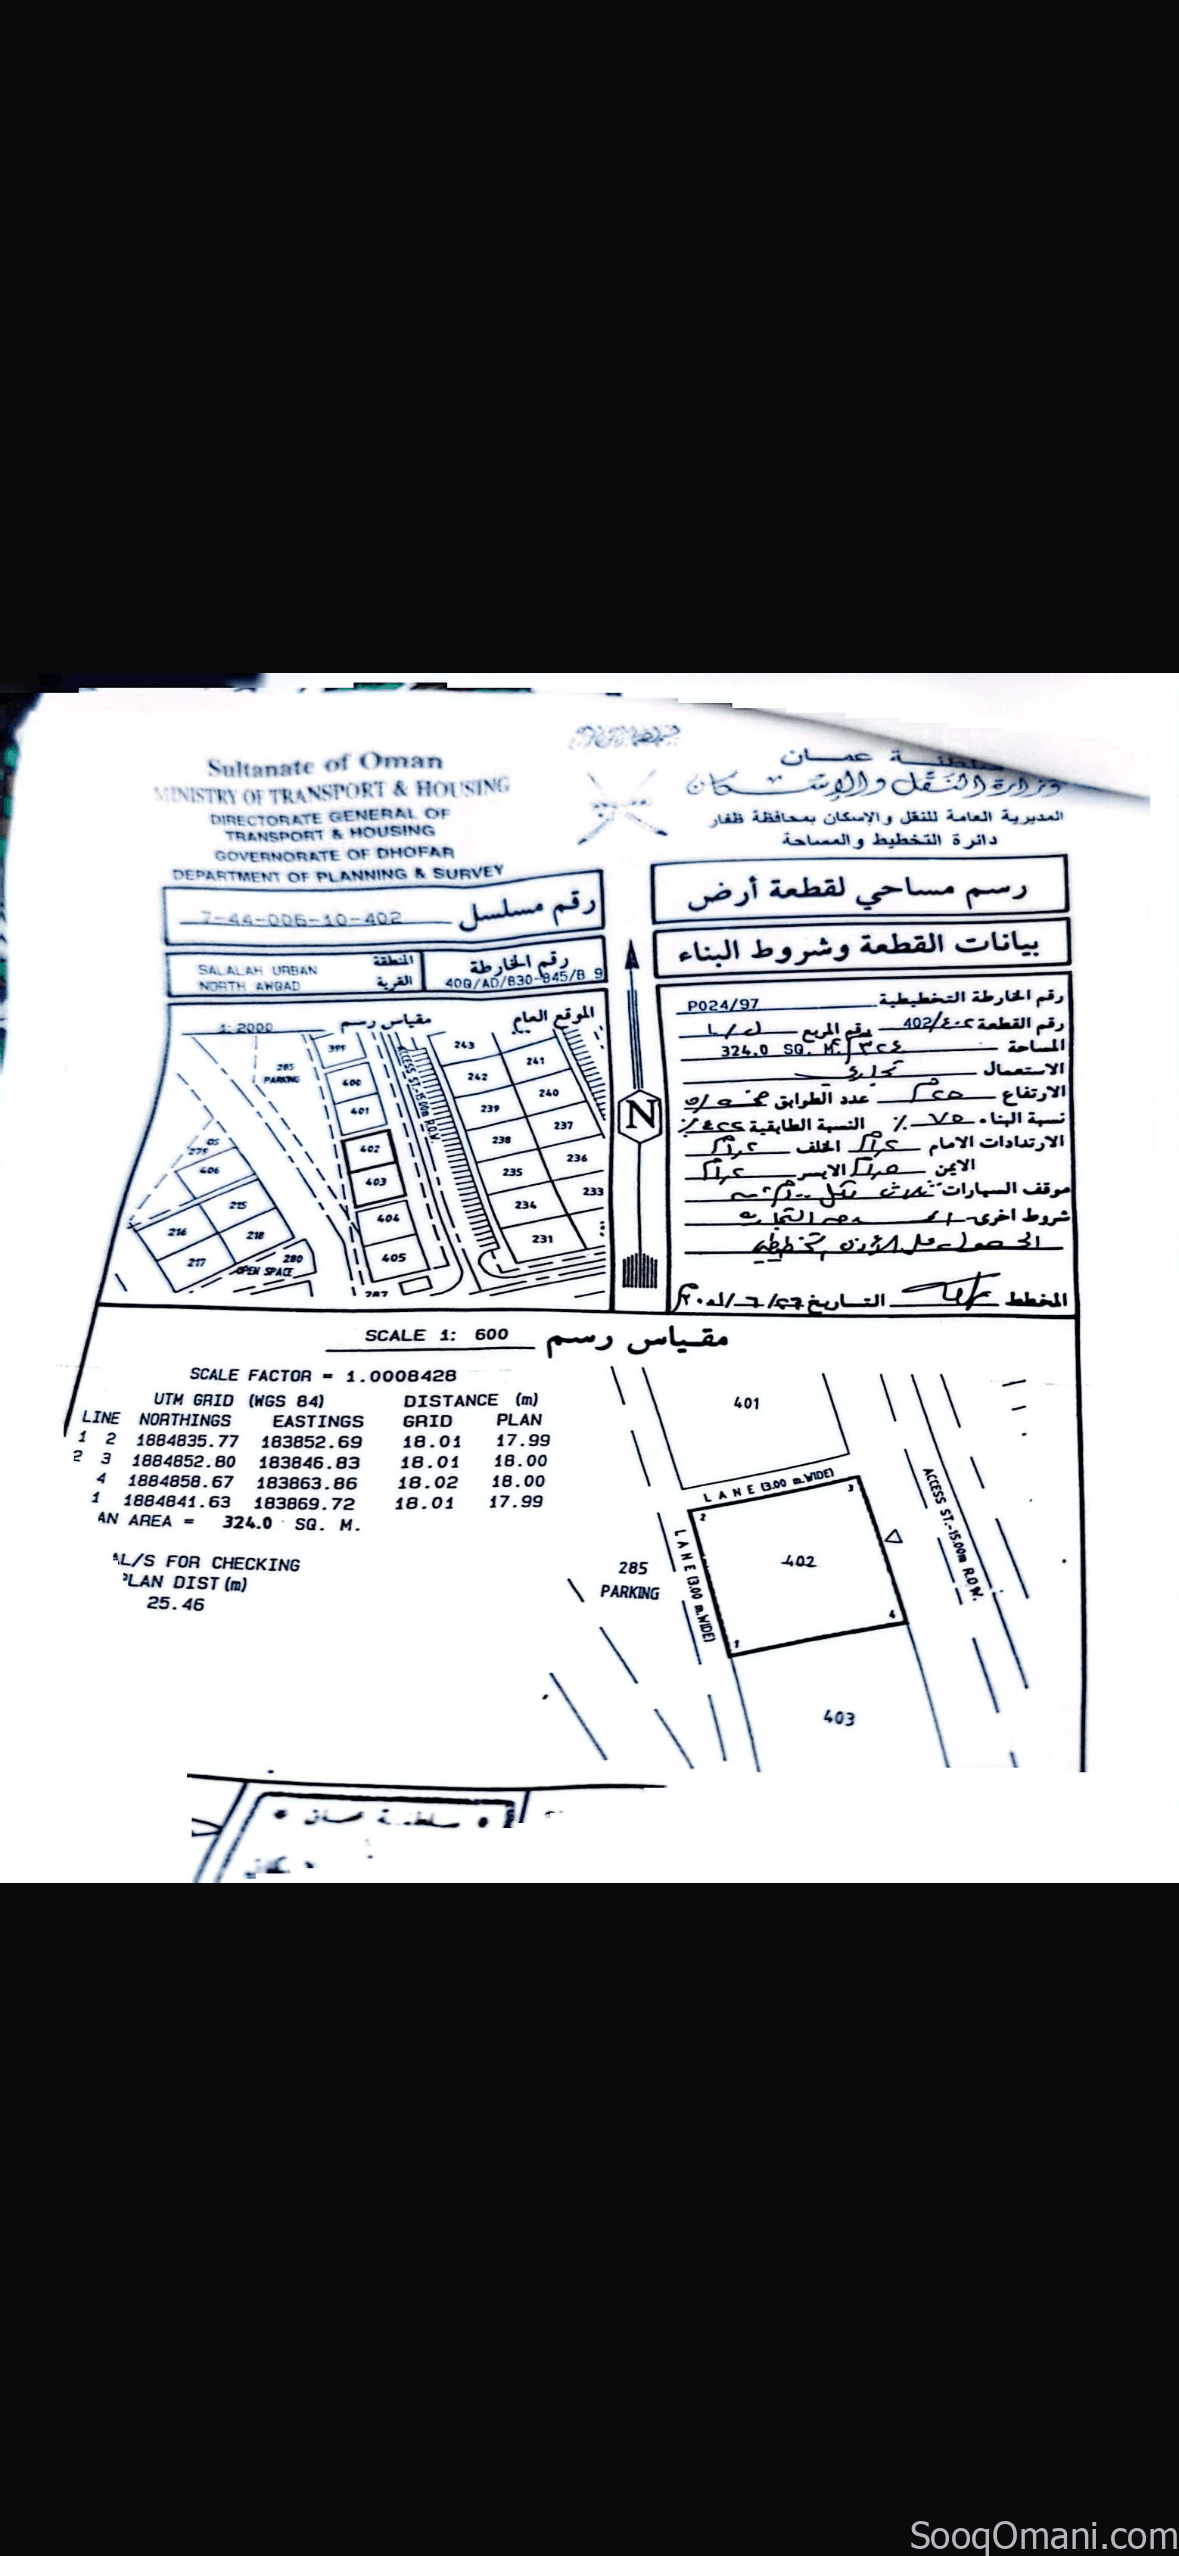 Sultanate of Oman
MINISTRY OF TRANSPORT & HOUSING
DIRECTORATE GENERAL OF
TRANSPORT & HOUSING
GOVERNORATE OF DHOFAR
DEPARTMENT OF PLANNING & SURVEY
سلطنة عمان
وزارة النقل والإسكان
المديرية العامة للنقل والإسكان بمحافظة ظفار
دائرة التخطيط والمساحة
رسم مساحي لقطعة أرض
رقم مسلسل 7-44-006-10-402
بيانات القطعة وشروط البناء
المنطقة SALALAH URBAN
القرية NORTH AWQAD
رقم الخارطة
40Q/AD/830-845/B 9
الموقع العام
مقياس رسم 1: 2000
399
400
401
402
403
404
405
287
285
PARKING
ACCESS ST.-15.00m R.O.W.
243
242
241
240
239
238
237
236
235
234
233
231
275
406
215
216
217
218
280
OPEN SPACE
N
رقم الخارطة التخطيطية P024/97
رقم القطعة 402/٤٠٢ رقم المربع
المساحة ٣٢٤م 324.0 SQ. M.
الاستعمال تجاري
الارتفاع عدد الطوابق
نسبة البناء ٧٥ % النسبة الطابقية %
الارتدادات الامام الخلف
الايمن الايسر
موقف السيارات ثلاث لكل
شروط اخرى
الحصول على الأذن التخطيطي
المخطط التاريخ
SCALE 1: 600 مقياس رسم
SCALE FACTOR = 1.0008428
UTM GRID (WGS 84) DISTANCE (m)
LINE NORTHINGS EASTINGS GRID PLAN
1 2 1884835.77 183852.69 18.01 17.99
2 3 1884852.80 183846.83 18.01 18.00
4 1884858.67 183863.86 18.02 18.00
1 1884841.63 183869.72 18.01 17.99
AN AREA = 324.0 SQ. M.
AL/S FOR CHECKING
PLAN DIST (m)
25.46
401
LANE (3.00 m.WIDE)
LANE (3.00 m.WIDE)
2
3
402
1
4
ACCESS ST.-15.00m R.O.W.
285
PARKING
403
سلطنة عمان
SooqOmani.com